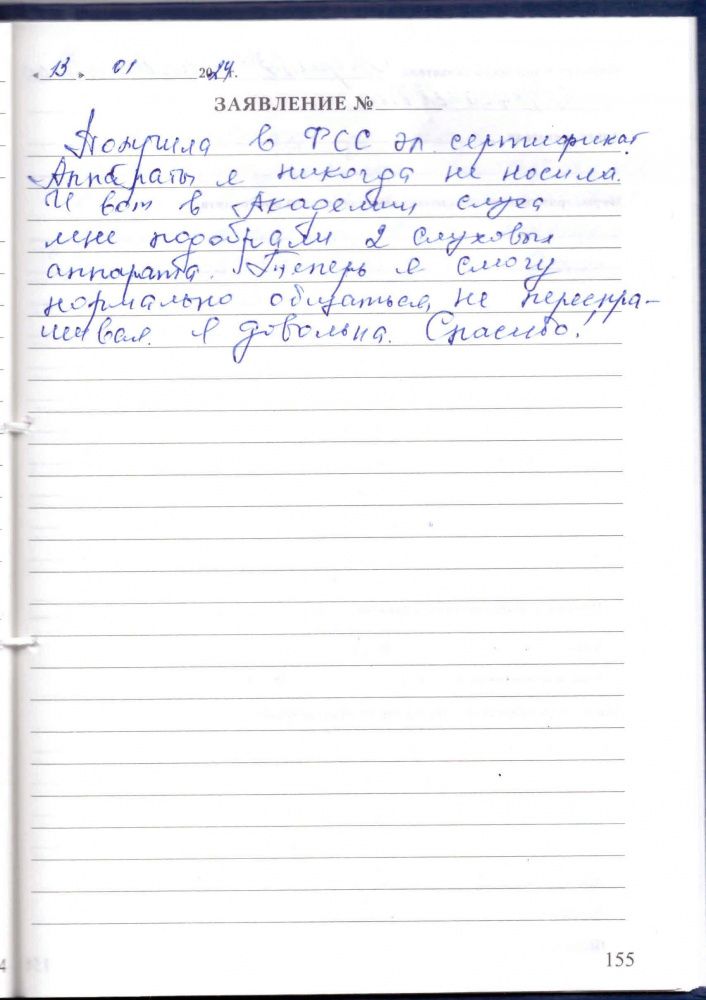 « 13 » 01 2024г.
ЗАЯВЛЕНИЕ №
Получила в ФСС эл. сертификат
Аппараты я никогда не носила.
И вот в Академии слуха
мне подобрали 2 слуховых
аппарата. Теперь я смогу
нормально общаться, не переспра-
шивая. Я довольна. Спасибо!
155